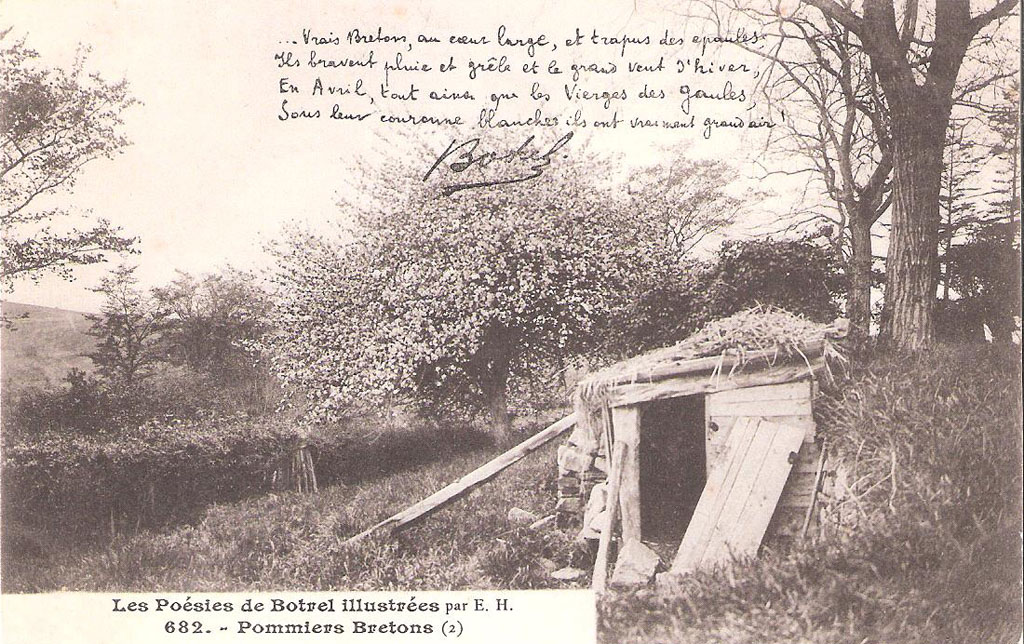 ... Vrais Bretons, au cœur large, et trapus des épaules,
Ils bravent pluie et grêle et le grand vent d'hiver,
En Avril, tout ainsi que les Vierges des Gaules,
Sous leur couronne blanche ils ont vraiment grand air !
Botrel.
Les Poésies de Botrel illustrées par E. H.
682. - Pommiers Bretons (2)